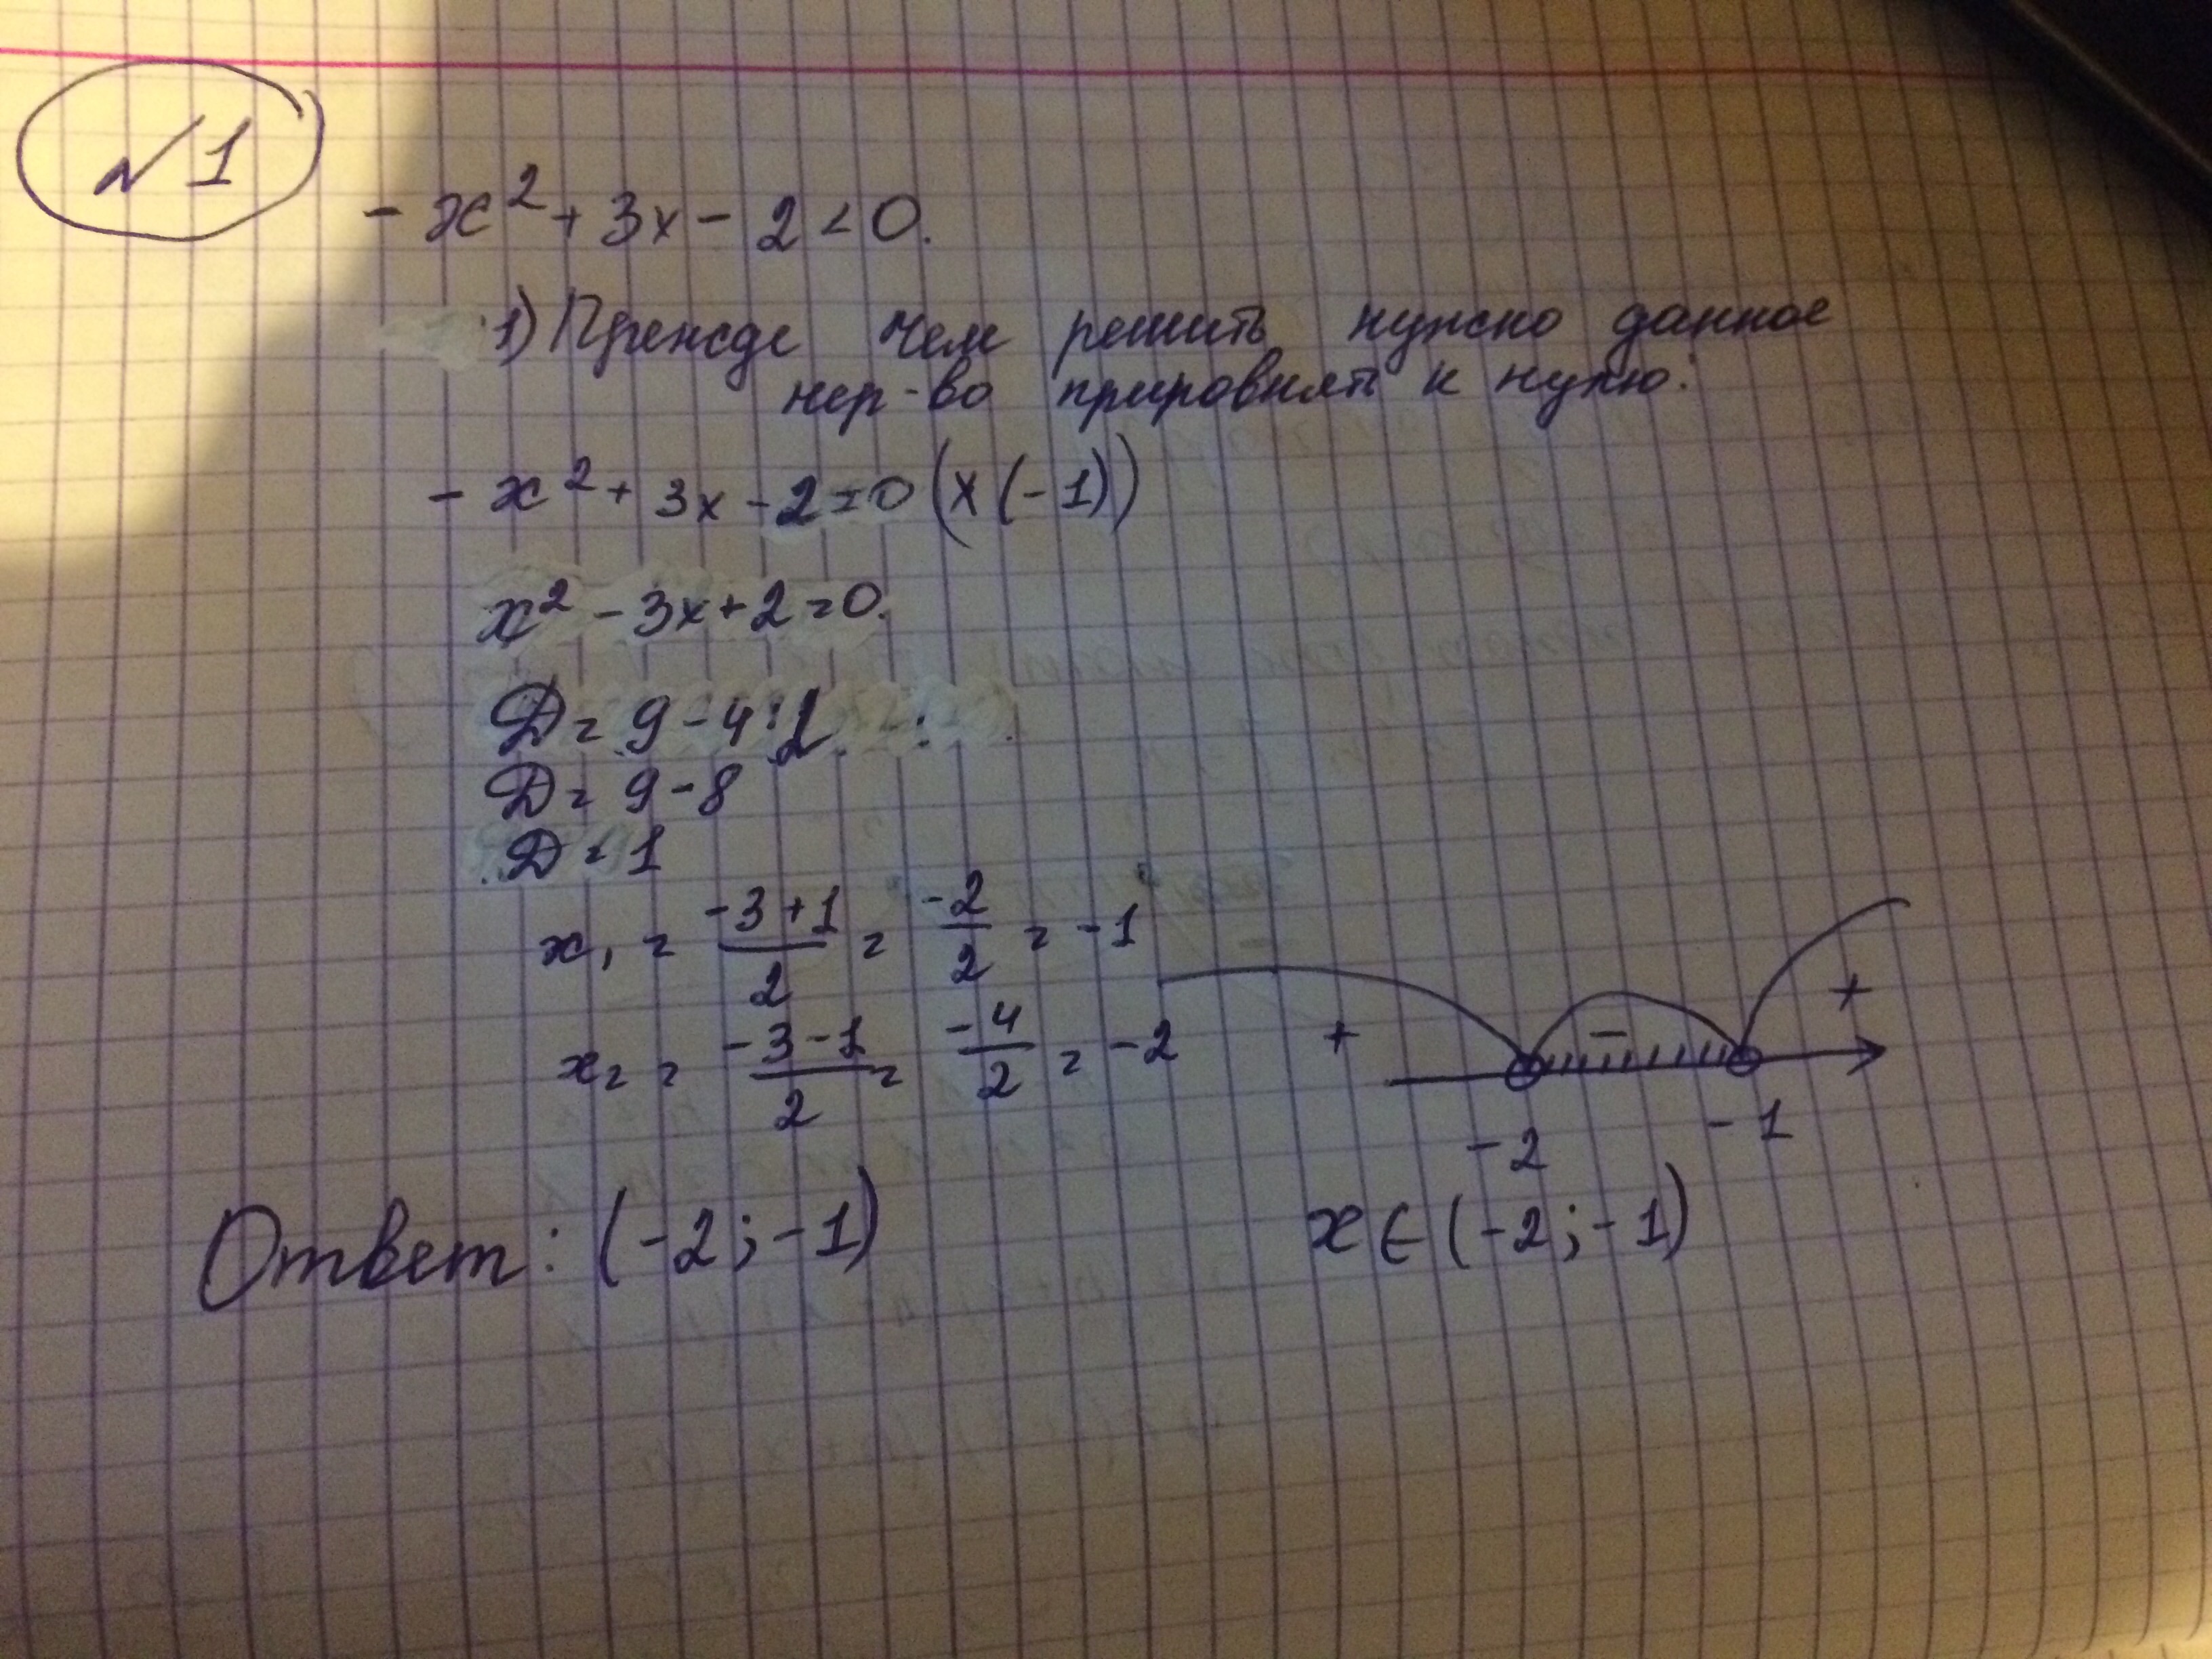 №1
- x² + 3x - 2 < 0.
1) Прежде чем решить нужно данное
нер-во прировнять к нулю:
- x² + 3x - 2 = 0 (× (-1))
x² - 3x + 2 = 0.
D = 9 - 4 · 2
D = 9 - 8
D = 1
x₁ = \frac{-3+1}{2} = \frac{-2}{2} = -1
x₂ = \frac{-3-1}{2} = \frac{-4}{2} = -2
+ - +
-2 -1
Ответ: (-2; -1)
x ∈ (-2; -1)